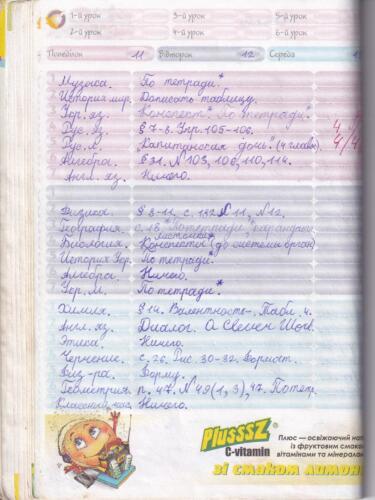 1-й урок 3-й урок 5-й урок
2-й урок 4-й урок 6-й урок
Понеділок 11 Вівторок 12 Середа
Музыка. По тетради*
История мир. Дописать таблицу.
Укр. яз. Конспект* По тетради*
Рус. яз. § 7-8. Упр. 105-106.
Рус. л. "Капитанская дочь" (4 главы)
Алгебра. § 31. № 103, 106, 110, 114.
Англ. яз. Ничего.
Физика. § 8-11, с. 132 № 11, № 12.
География. с. 18, По тетради, карандаши
Биология. Конспекты (до системы орган)
История Укр. По тетради.
Алгебра. Ничего.
Укр. л. По тетради*
Химия. § 14. Валентность., Табл. 4.
Англ. яз. Диалог. A Clever
Этика. Ничего.
Черчение. с. 26. Рис. 30-32. Формат.
Физ-ра. Форму.
Геометрия. п. 47. № 49 (1, 3), 47. По тетр.
Классный час. Ничего.
PlusssZ
C-vitamin
Плюс – освіжаючий
із фруктовим
вітамінами та
зі смаком